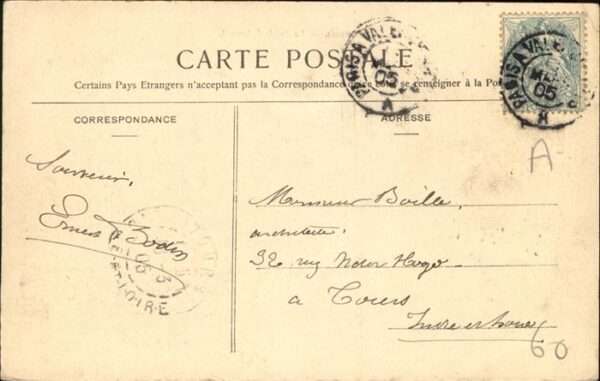 CARTE POSTALE
Certains Pays Etrangers n'acceptant pas la Correspondance se renseigner à la Pos
CORRESPONDANCE
ADRESSE
Souvenir,
Ernest Bodin
Monsieur Boille,
architecte,
32 rue Victor Hugo
à Tours
Indre et Loire
PARIS A VALE
05
PARIS A VALE
05
05
ET-LOIRE
A
60